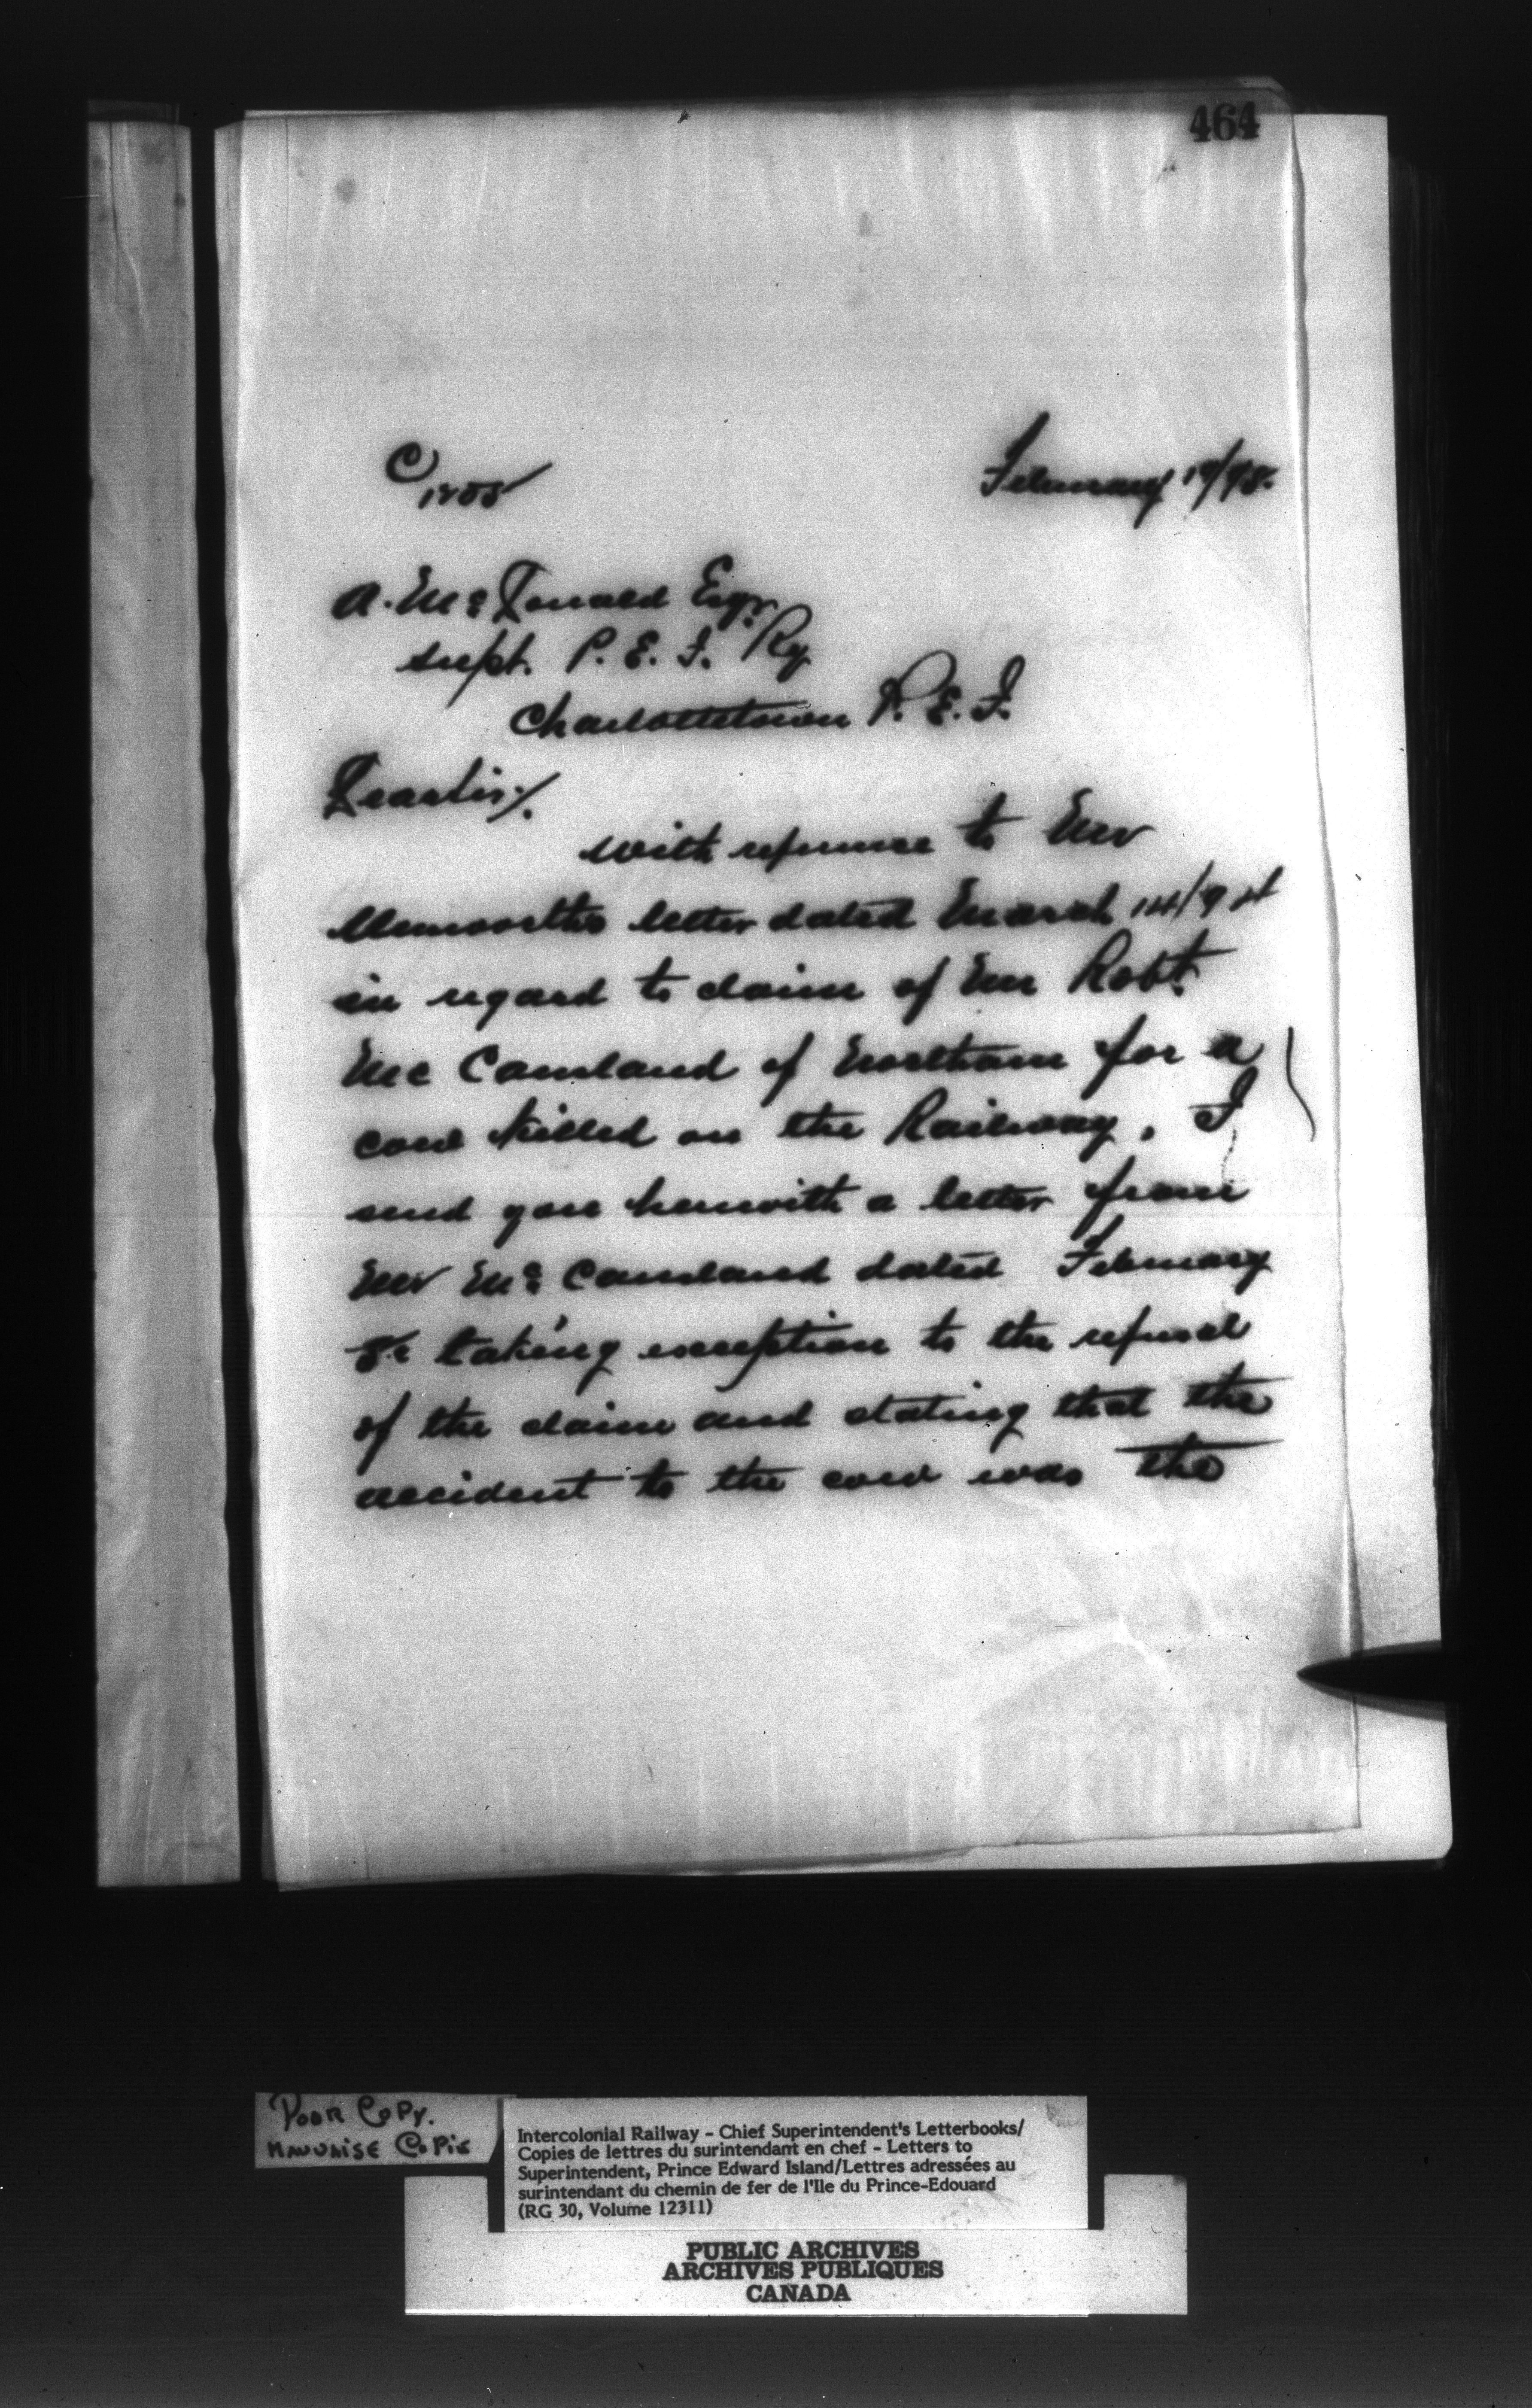 464
C
February 19/95.
A. McDonald Esqr.
Supt. P. E. I. Ry
Charlottetown P. E. I.
Dear Sir/.
With reference to Mr
Unsworths letter dated March 14/94
in regard to claim of Mr Robt.
Mc Causland of Northam for a
cow killed on the Railway, I
send you herewith a letter from
Mr Mc Causland dated February
taking exception to the refusal
of the claim and stating that the
accident to the cow was the
Poor Copy.
Mauvaise Copie
Intercolonial Railway - Chief Superintendent's Letterbooks/
Copies de lettres du surintendant en chef - Letters to
Superintendent, Prince Edward Island/Lettres adressées au
surintendant du chemin de fer de l'Ile du Prince-Edouard
(RG 30, Volume 12311)
PUBLIC ARCHIVES
ARCHIVES PUBLIQUES
CANADA